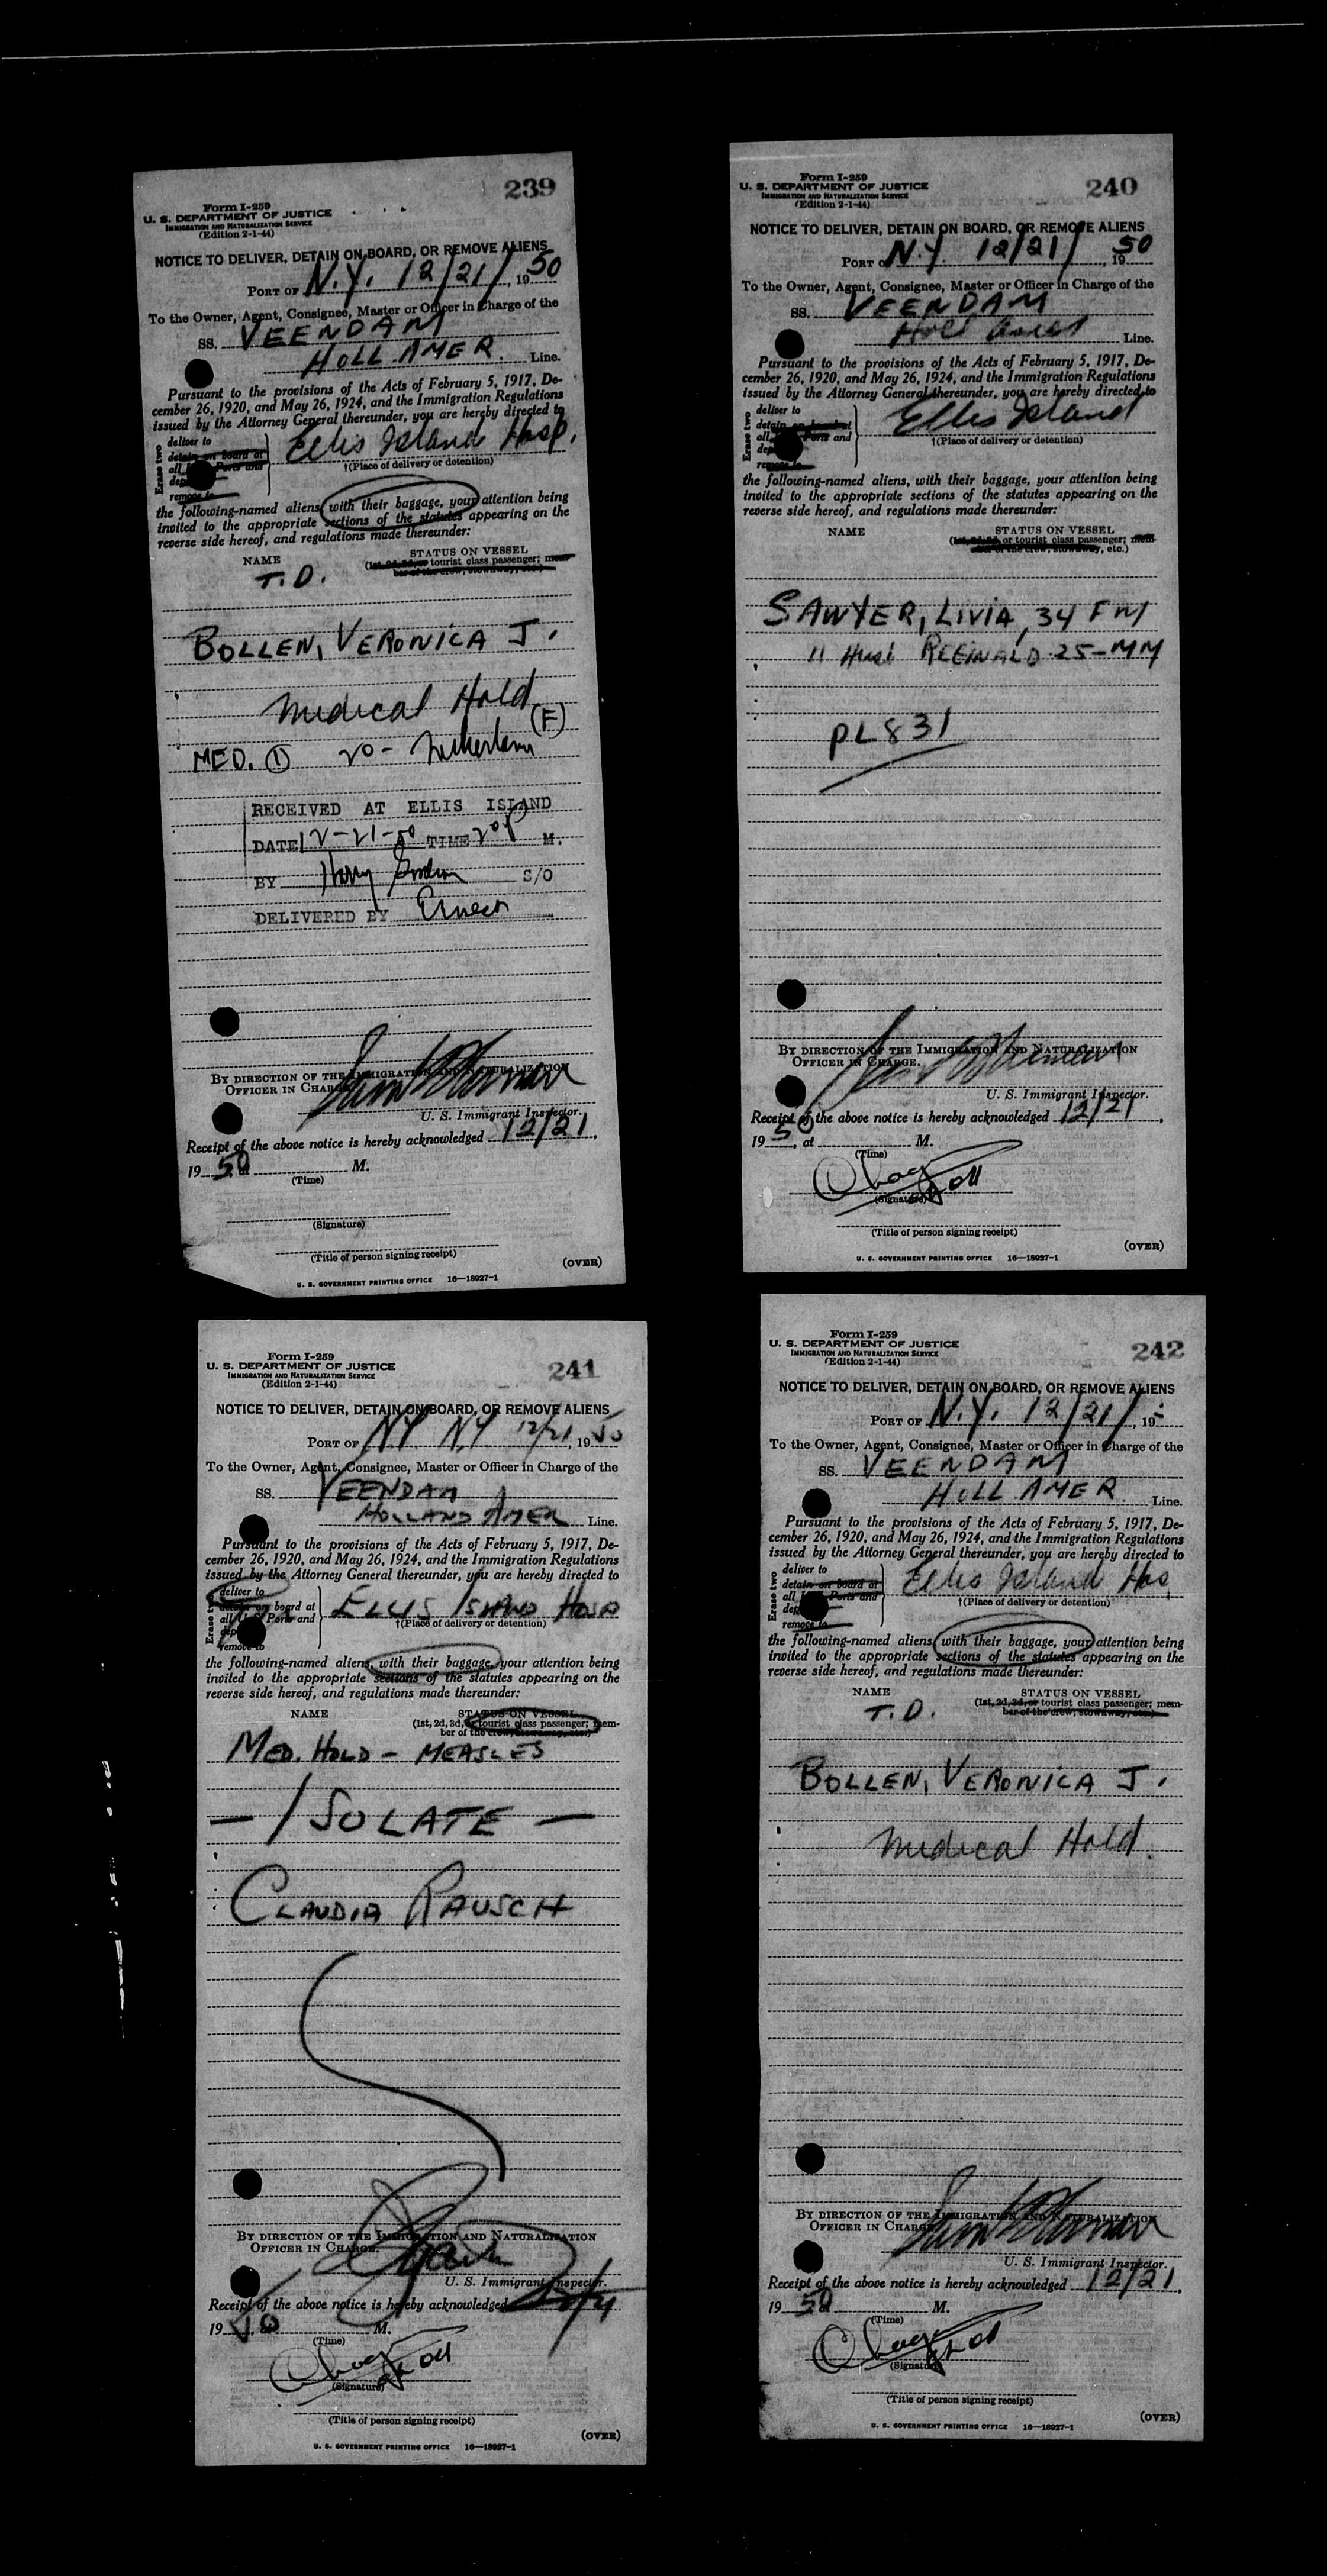 239
Form I-259
U. S. DEPARTMENT OF JUSTICE
IMMIGRATION AND NATURALIZATION SERVICE
(Edition 2-1-44)
NOTICE TO DELIVER, DETAIN ON BOARD, OR REMOVE ALIENS
PORT OF N.Y. 12/21/, 1950
To the Owner, Agent, Consignee, Master or Officer in Charge of the
SS. VEENDAM
HOLL. AMER. Line.
Pursuant to the provisions of the Acts of February 5, 1917, De-
cember 26, 1920, and May 26, 1924, and the Immigration Regulations
issued by the Attorney General thereunder, you are hereby directed to
Erase two
deliver to
detain on board at
all Ports and
remove to
Ellis Island Hosp.
†(Place of delivery or detention)
the following-named aliens, with their baggage, your attention being
invited to the appropriate sections of the statutes appearing on the
reverse side hereof, and regulations made thereunder:
NAME
STATUS ON VESSEL
(1st, 2d, 3d, or tourist class passenger; mem-
ber of the crew, stowaway, etc.)
T.D.
BOLLEN, VERONICA J.
Medical Hold
(F)
MED. ① 20-
RECEIVED AT ELLIS ISLAND
DATE 12-21-50 TIME M.
BY Harry S/O
DELIVERED BY
BY DIRECTION OF THE IMMIGRATION AND NATURALIZATION
OFFICER IN CHARGE.
U. S. Immigrant Inspector.
Receipt of the above notice is hereby acknowledged 12/21,
1950 at M.
(Time)
(Signature)
(Title of person signing receipt)
(OVER)
U. S. GOVERNMENT PRINTING OFFICE 16—18927-1
240
Form I-259
U. S. DEPARTMENT OF JUSTICE
IMMIGRATION AND NATURALIZATION SERVICE
(Edition 2-1-44)
NOTICE TO DELIVER, DETAIN ON BOARD, OR REMOVE ALIENS
PORT OF N.Y. 12/21/, 1950
To the Owner, Agent, Consignee, Master or Officer in Charge of the
SS. VEENDAM
Holl Amer Line.
Pursuant to the provisions of the Acts of February 5, 1917, De-
cember 26, 1920, and May 26, 1924, and the Immigration Regulations
issued by the Attorney General thereunder, you are hereby directed to
Erase two
deliver to
detain on board at
all Ports and
remove to
Ellis Island
†(Place of delivery or detention)
the following-named aliens, with their baggage, your attention being
invited to the appropriate sections of the statutes appearing on the
reverse side hereof, and regulations made thereunder:
NAME
STATUS ON VESSEL
(1st, 2d, 3d, or tourist class passenger; mem-
ber of the crew, stowaway, etc.)
SAWYER, LIVIA, 34 FM
" Husb REGINALD 25-MM
PL 831
BY DIRECTION OF THE IMMIGRATION AND NATURALIZATION
OFFICER IN CHARGE.
U. S. Immigrant Inspector.
Receipt of the above notice is hereby acknowledged 12/21,
1950, at M.
(Time)
(Signature)
(Title of person signing receipt)
(OVER)
U. S. GOVERNMENT PRINTING OFFICE 16—18927-1
241
Form I-259
U. S. DEPARTMENT OF JUSTICE
IMMIGRATION AND NATURALIZATION SERVICE
(Edition 2-1-44)
NOTICE TO DELIVER, DETAIN ON BOARD, OR REMOVE ALIENS
PORT OF N.Y. N.Y 12/21, 1950
To the Owner, Agent, Consignee, Master or Officer in Charge of the
SS. VEENDAM
HOLLAND AMER Line.
Pursuant to the provisions of the Acts of February 5, 1917, De-
cember 26, 1920, and May 26, 1924, and the Immigration Regulations
issued by the Attorney General thereunder, you are hereby directed to
Erase two
deliver to
detain on board at
all U.S. Ports and
remove to
ELLIS ISLAND HOSP
†(Place of delivery or detention)
the following-named aliens, with their baggage, your attention being
invited to the appropriate sections of the statutes appearing on the
reverse side hereof, and regulations made thereunder:
NAME
STATUS ON VESSEL
(1st, 2d, 3d, or tourist class passenger; mem-
ber of the crew, stowaway, etc.)
MED. HOLD - MEASLES
— ISOLATE —
CLAUDIA RAUSCH
BY DIRECTION OF THE IMMIGRATION AND NATURALIZATION
OFFICER IN CHARGE.
U. S. Immigrant Inspector.
Receipt of the above notice is hereby acknowledged
1950 M.
(Time)
(Signature)
(Title of person signing receipt)
(OVER)
U. S. GOVERNMENT PRINTING OFFICE 16—18927-1
242
Form I-259
U. S. DEPARTMENT OF JUSTICE
IMMIGRATION AND NATURALIZATION SERVICE
(Edition 2-1-44)
NOTICE TO DELIVER, DETAIN ON BOARD, OR REMOVE ALIENS
PORT OF N.Y. 12/21/, 195
To the Owner, Agent, Consignee, Master or Officer in Charge of the
SS. VEENDAM
HOLL AMER. Line.
Pursuant to the provisions of the Acts of February 5, 1917, De-
cember 26, 1920, and May 26, 1924, and the Immigration Regulations
issued by the Attorney General thereunder, you are hereby directed to
Erase two
deliver to
detain on board at
all Ports and
remove to
Ellis Island Hos
†(Place of delivery or detention)
the following-named aliens, with their baggage, your attention being
invited to the appropriate sections of the statutes appearing on the
reverse side hereof, and regulations made thereunder:
NAME
STATUS ON VESSEL
(1st, 2d, 3d, or tourist class passenger; mem-
ber of the crew, stowaway, etc.)
T.D.
BOLLEN, VERONICA J.
Medical Hold.
BY DIRECTION OF THE IMMIGRATION AND NATURALIZATION
OFFICER IN CHARGE.
U. S. Immigrant Inspector.
Receipt of the above notice is hereby acknowledged 12/21,
1950 at M.
(Time)
(Signature)
(Title of person signing receipt)
(OVER)
U. S. GOVERNMENT PRINTING OFFICE 16—18927-1